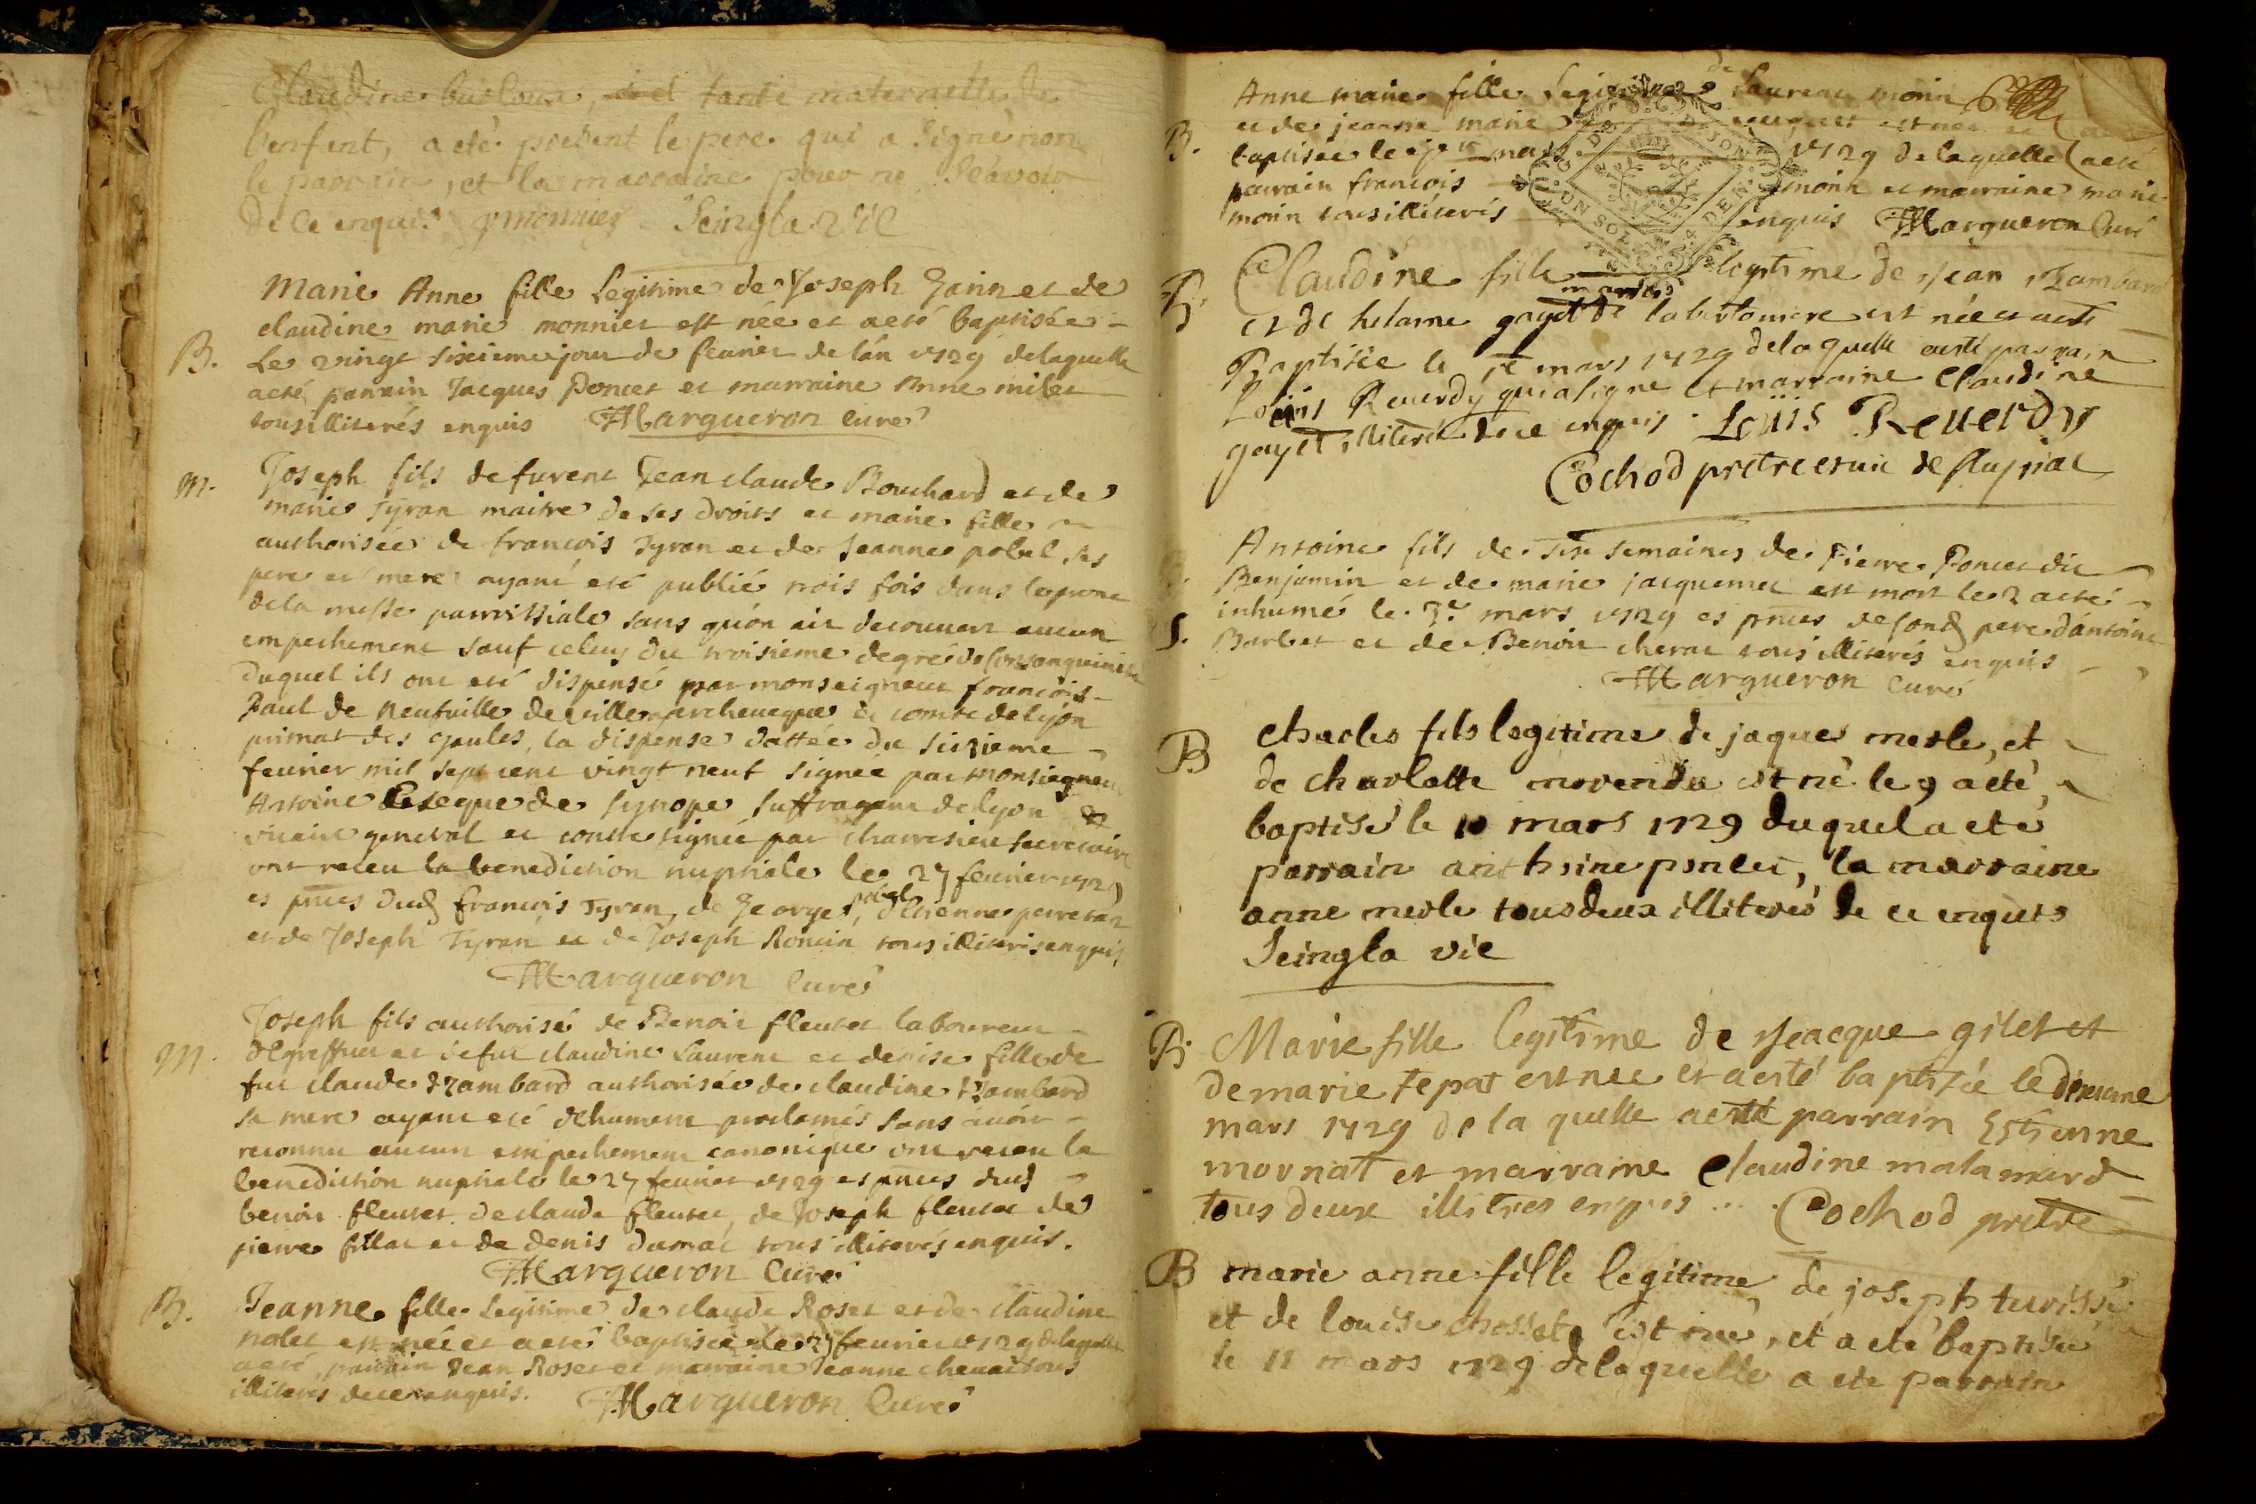 Claudine burloux, tante maternelle de
lenfent, a été present le pere qui a signé non
le parrain, et la marraine pour ne scavoir
de ce enquis pmonnier Seingla Vic
Marie Anne fille Legitime de Joseph Janin et de
claudine marie monnier est née et aeté baptisée
B. Le vingt sixieme jour de fevrier de lán 1729 delaquelle
aeté parrain Jacques Poncet et marraine Anne milet
tous illiterés enquis Margueron Curé
m. Joseph fils de furent Jean claude Bouchard et de
marie Tyran maitre de ses droits et marie fille
authorisée de francois Tyran et de Jeanne pobel ses
pere et mere ayant eté publié trois fois dans leprone
dela messe parroissiale sans quón ait decouvert aucun
empechement sauf celuy du troisieme degré de Consanguinité
duquel ils ont eté dispensé par monseigneur françois
Paul de neufville de villeroy archeueque et comte de lyon
primat des Gaules, la dispense dattée du sixieme
feurier mil sept cent vingt neuf signée par Monsiegneur
Antoine Eveque de synope suffragant de lyon et
vicaire general et contre signée par secretaire
ont receu la benediction nuptiale le 27 feurier 1729
es pnces dud francois Tyran, de George pobel, détienne
et de Joseph Tyran et de Joseph Roncin tous illiterés enquis
Margueron Curé
Joseph fils authorisé de Benoit fleuret laboureur
M. et defue claudine Laurent et denise fille de
fue claude Rambard authorisée de claudine Rambard
sa mere ayant eté dehument proclamés sans avoir
reconnu aucun empechement canonique ont receu la
benediction nuptiale le 27 feurier 1729 es pnces dud
benoit fleuret de claude fleuret, de Joseph fleuret de
pierre fillat et de denis dumas tous illiterés enquis.
Margueron Curé
B. Jeanne fille Legitime de claude Roset et de claudine
nolet est née et aeté baptisée le 27 feurier 1729 delaquelle
aeté parrain Jean Roset et marraine Jeanne tous
illiterés dece enquis. Margueron Curé
Anne marie fille Legitime de Laurent monin
et de jeanne marie est née et aeté
B. baptisée le mars 1729 de laquelle aeté
parrain francois monin et marraine marie
monin tous illiterés enquis Margueron Curé
B Claudine fille legitime de Jean Rambard
martin
et de helaine gayet de est née et aesté
Baptisée le mars 1729 dela quelle aesté parrain
Loüis Reuerdy qui a signe et marraine Claudine
gayet illiteré de ce enquis Loüis Reuerdy
Cochod pretre
Antoine fils de six semaines de Pierre Poncet dit
B. Benjamin et de marie jacquemet est mort le 2 aeté
inhumé le 3e mars 1729 es pnces desond pere dantoine
S. Barbet et de Benoit cherat tous illiterés enquis
Margueron Curé
B charles fils legitime de jaques merle, et
de charlotte est né le 9 a eté
baptisé le 10 mars 1729 duquel a eté
parrain anthoine poncet, la marraine
anne merle tous deux illiterés de ce enquis
Seingla vic
B. Marie fille legitime de Jeacque gilet et
de marie tepat est nee et aesté baptisée le
mars 1729 de la quelle aesté parrain Estienne
mornat et marraine Claudine malamard
tous deux illitres enquis ... Cochod pretre
B marie anne fille legitime de joseph
et de louise est née, et a eté baptisée
le 11 mars 1729 delaquelle a eté parrain